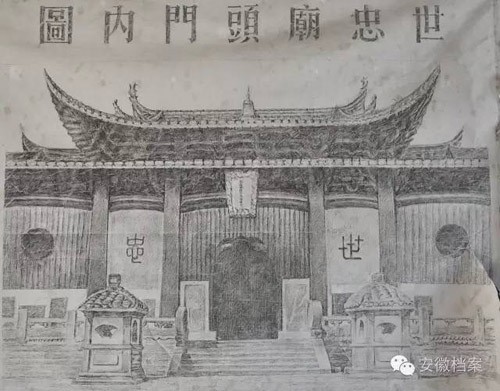 世忠廟頭門內圖
世 忠
安徽档案